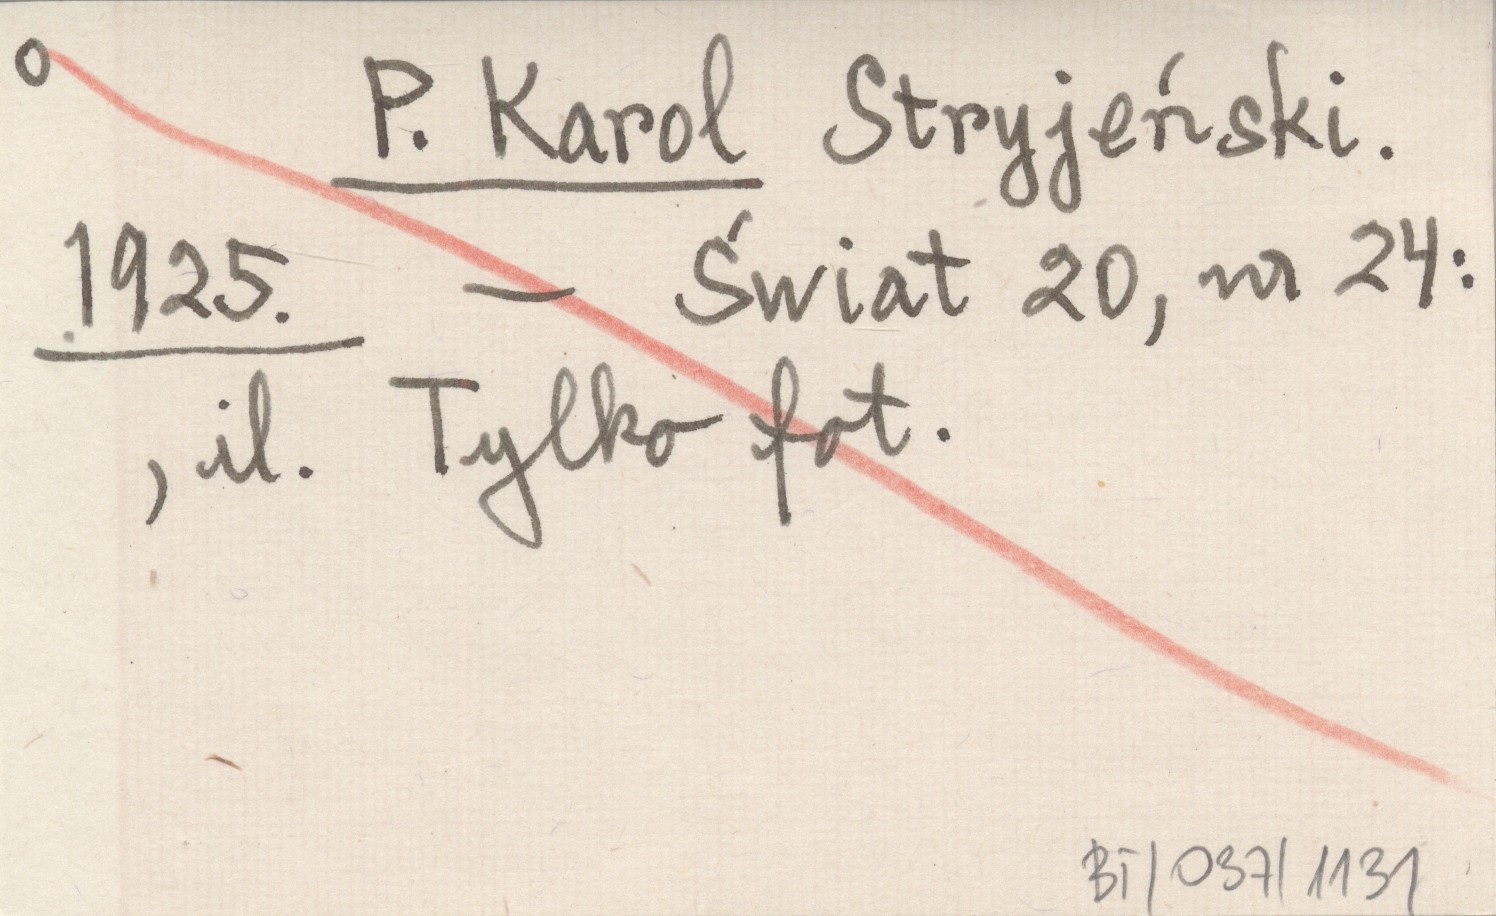 o P. Karol Stryjeński.
1925. — Świat 20, nr 24:
, il. Tylko fot.
BT/037/1131